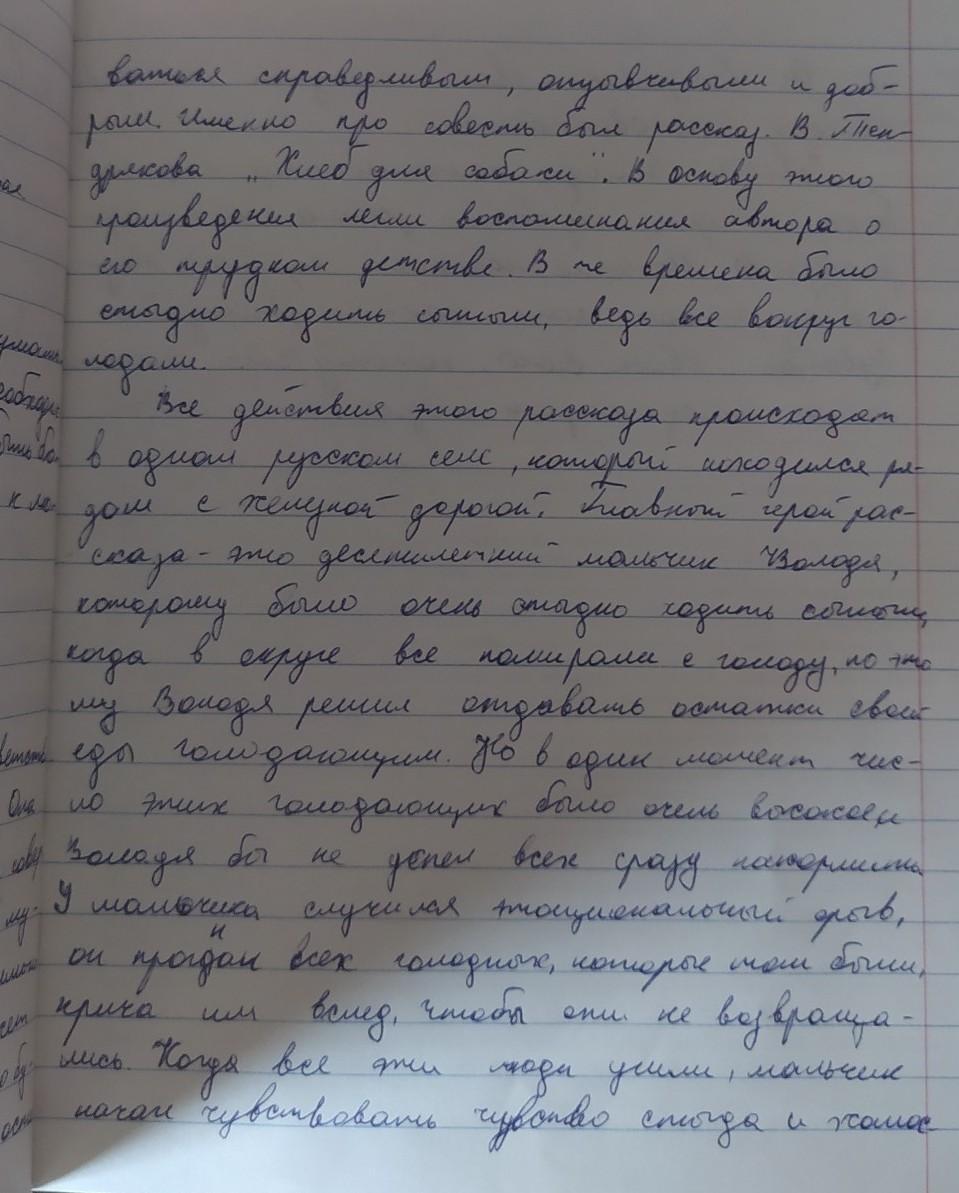 ваться справедливым, отзывчивыми и доб-
рым. Именно про совесть был рассказ. В. Тен-
дрякова „Хлеб для собаки". В основу этого
произведения легли воспоминания автора о
его трудном детстве. В те времена было
стыдно ходить сытым, ведь все вокруг го-
лодали.
Все действия этого рассказа происходят
в одном русском селе, который находился ря-
дом с железной дорогой. Главный герой рас-
сказа - это десятилетний мальчик Володя,
которому было очень стыдно ходить сытым,
когда в округе все помирали с голоду, по это
му Володя решил отдавать остатки своей
еды голодающим. Но в один момент чис-
ло этих голодающих было очень высокое и
Володя бы не успел всех сразу накормить
У мальчика случился эмоциональный срыв,
он прогнал всех голодных, которые там были,
крича им вслед, чтобы они не возвраща-
лись. Когда все эти люди ушли, мальчик
начал чувствовать чувство стыда и жалос